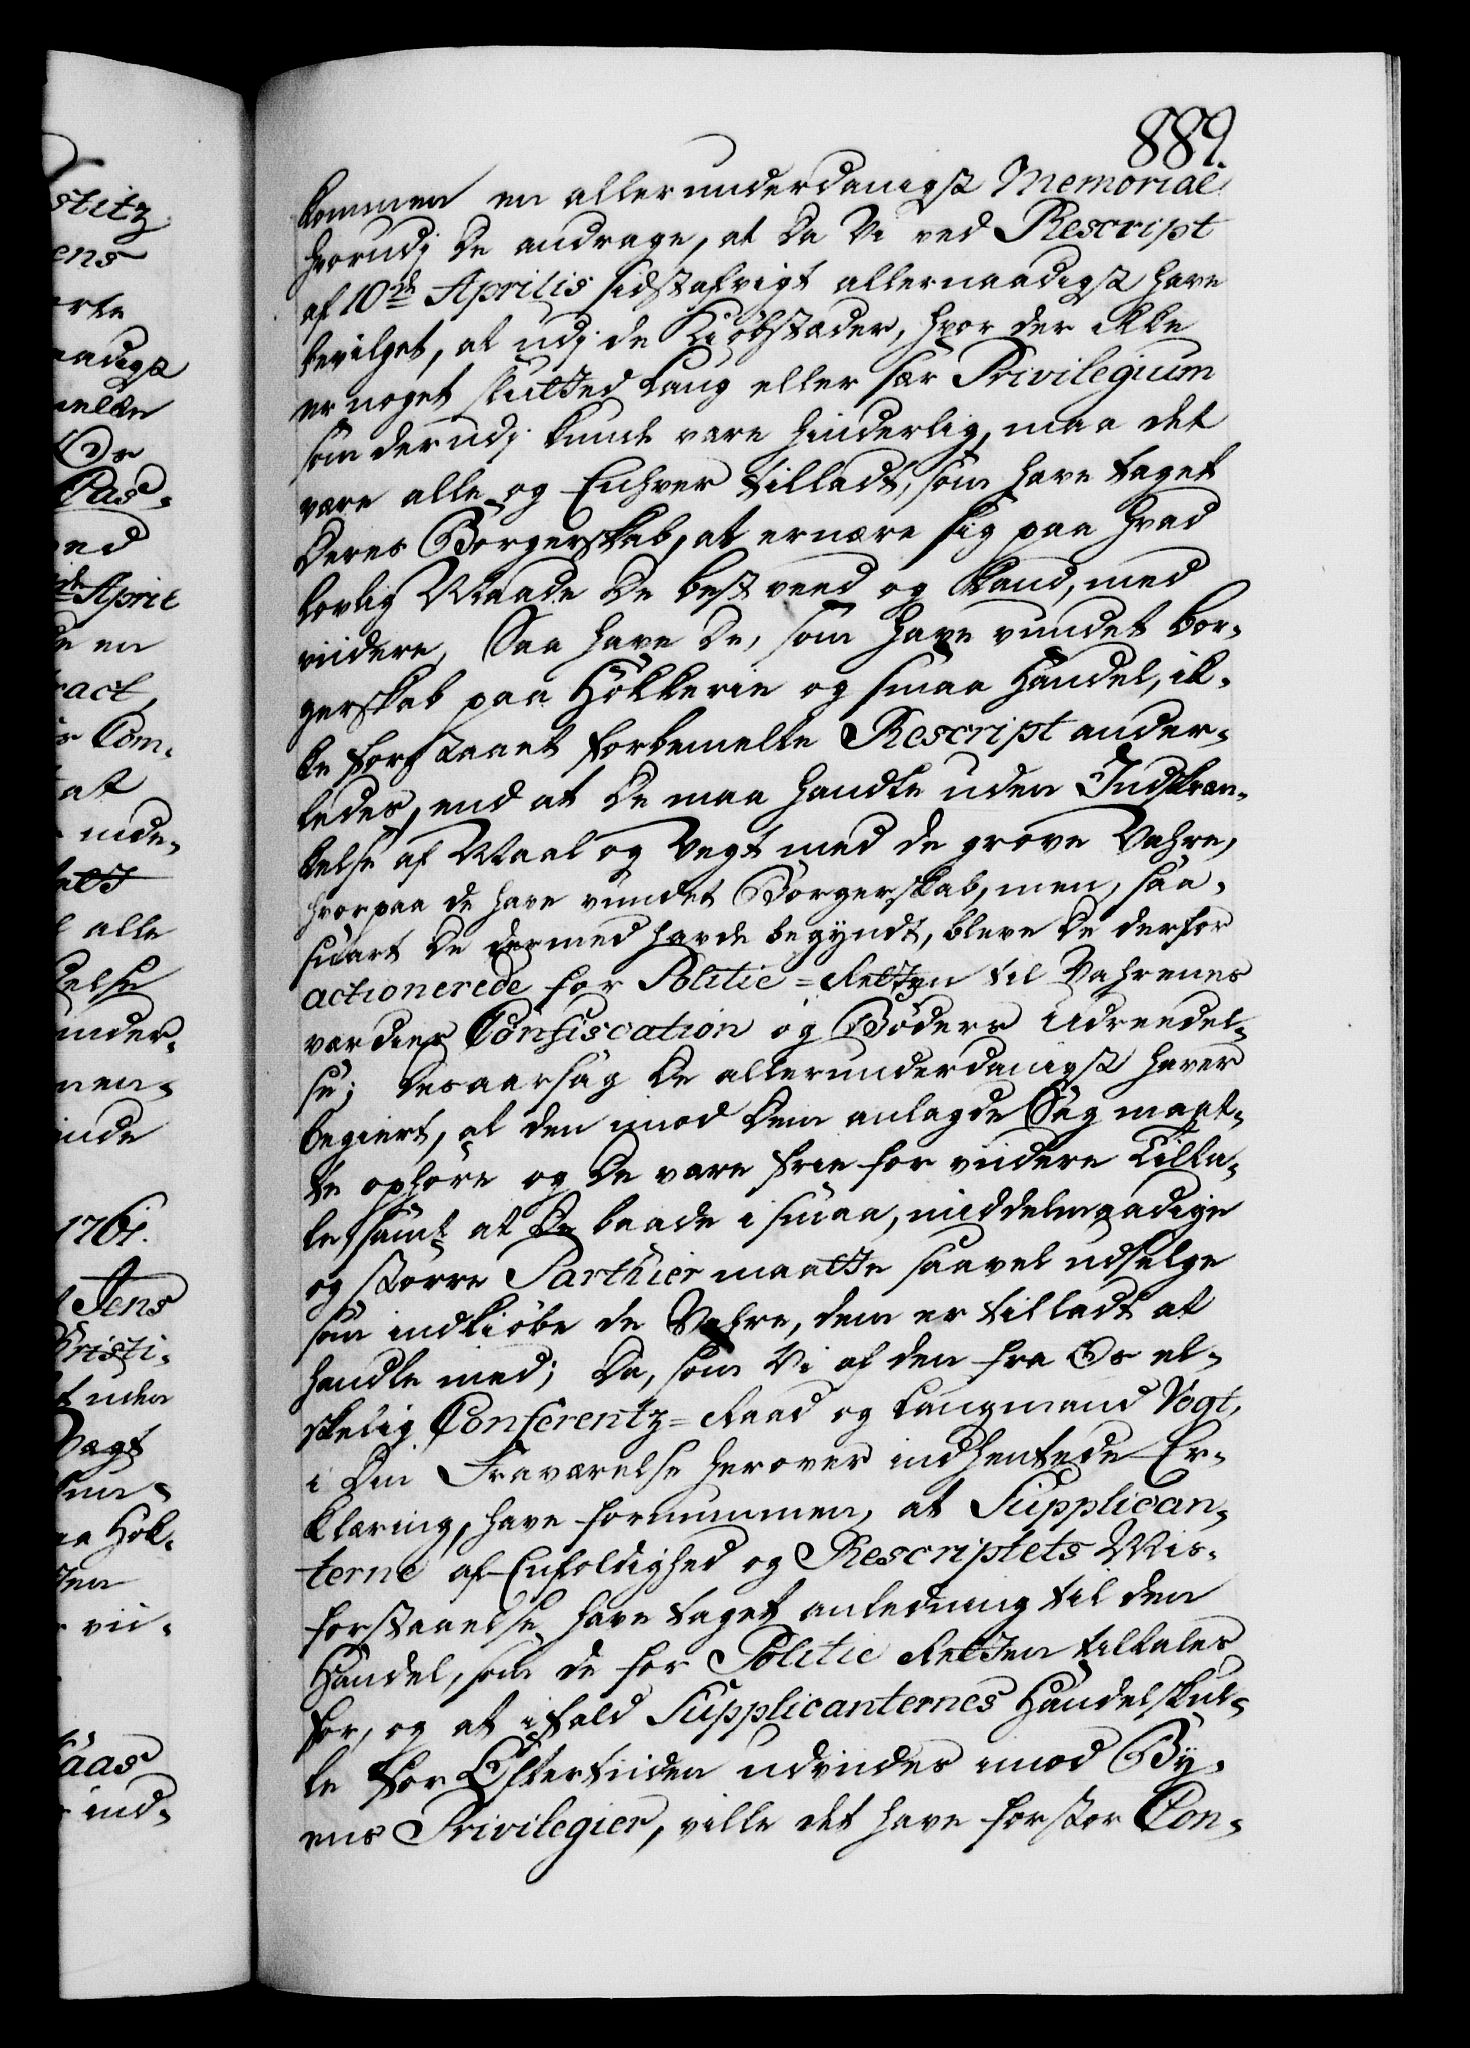 889.
kommen en allerunderdanigst Memorial
hvorudj de andrage, at da Vi ved Rescript
af 10de Aprilis sidstafvigt allernaadigst have
bevilget, at udj de Kiøbstæder, hvor der ikke
er noget slutted Laug eller sær Privilegium
som derudj kunde være hinderlig, maa det
være alle og Enhver tilladt, som have taget
deres Borgerskab, at ernære sig paa hvad
lovlig Maade de best veed og kand, med
viidere, Saa have de, som have vundet Bor-
gerskab paa Hökkerie og smaa Handel, ik-
ke forstaaet forbemelte Rescript ander-
ledes, end at de maa handle uden Indskræn-
kelse af Maal og Vegt med de grove Vahre,
hvorpaa de have vundet Borgerskab, men, saa-
snart de dermed havde begyndt, bleve de derfor
actionerede for Politie=Retten til Vahrenes
værdies Confiscation og Bøders Udreedel-
se; desaarsag de allerunderdanigst haver
begiert, at den imod dem anlagde Sag maat-
te ophøre og de være frie for viidere Tilta-
le, samt at de baade i smaa, middelmaadige
og større Parthier maatte saavel udselge
som indkiøbe de Vahre, dem er tilladt at
handle med; Da, som Vi af den fra Os el-
skelig Conferentz=Raad og Laugmand Vogt,
i Din Fraværelse herover indhentede Er-
klæring, have fornummen, at Supplican-
terne af Enfoldighed og Rescriptets Mis-
forstaaelse have taget anledning til den
Handel, som de for Politie Retten tiltales
for, og at ifald Supplicanternes Handel skul-
le for Eftertiiden udviides imod By-
ens Privilegier, ville det have for stor Con-